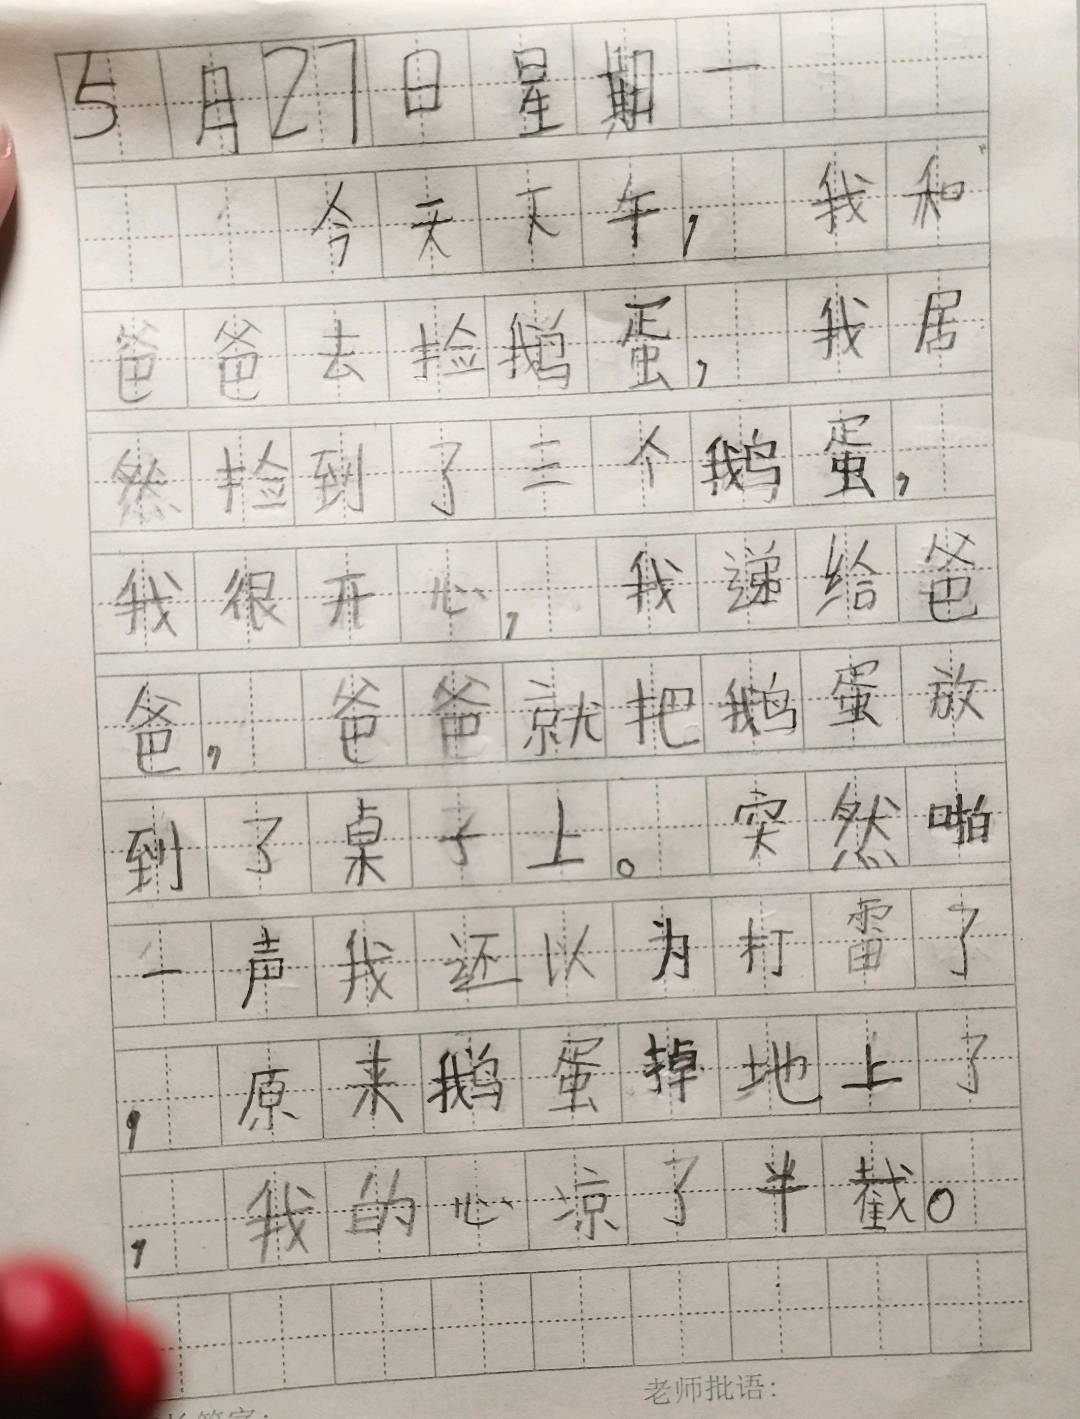 5月27日星期一
今天下午,我和
爸爸去捡鹅蛋,我居
然捡到了三个鹅蛋,
我很开心,我递给爸
爸,爸爸就把鹅蛋放
到了桌子上。突然啪
一声我还以为打雷了
,原来鹅蛋掉地上了
,我的心凉了半截。
老师批语: